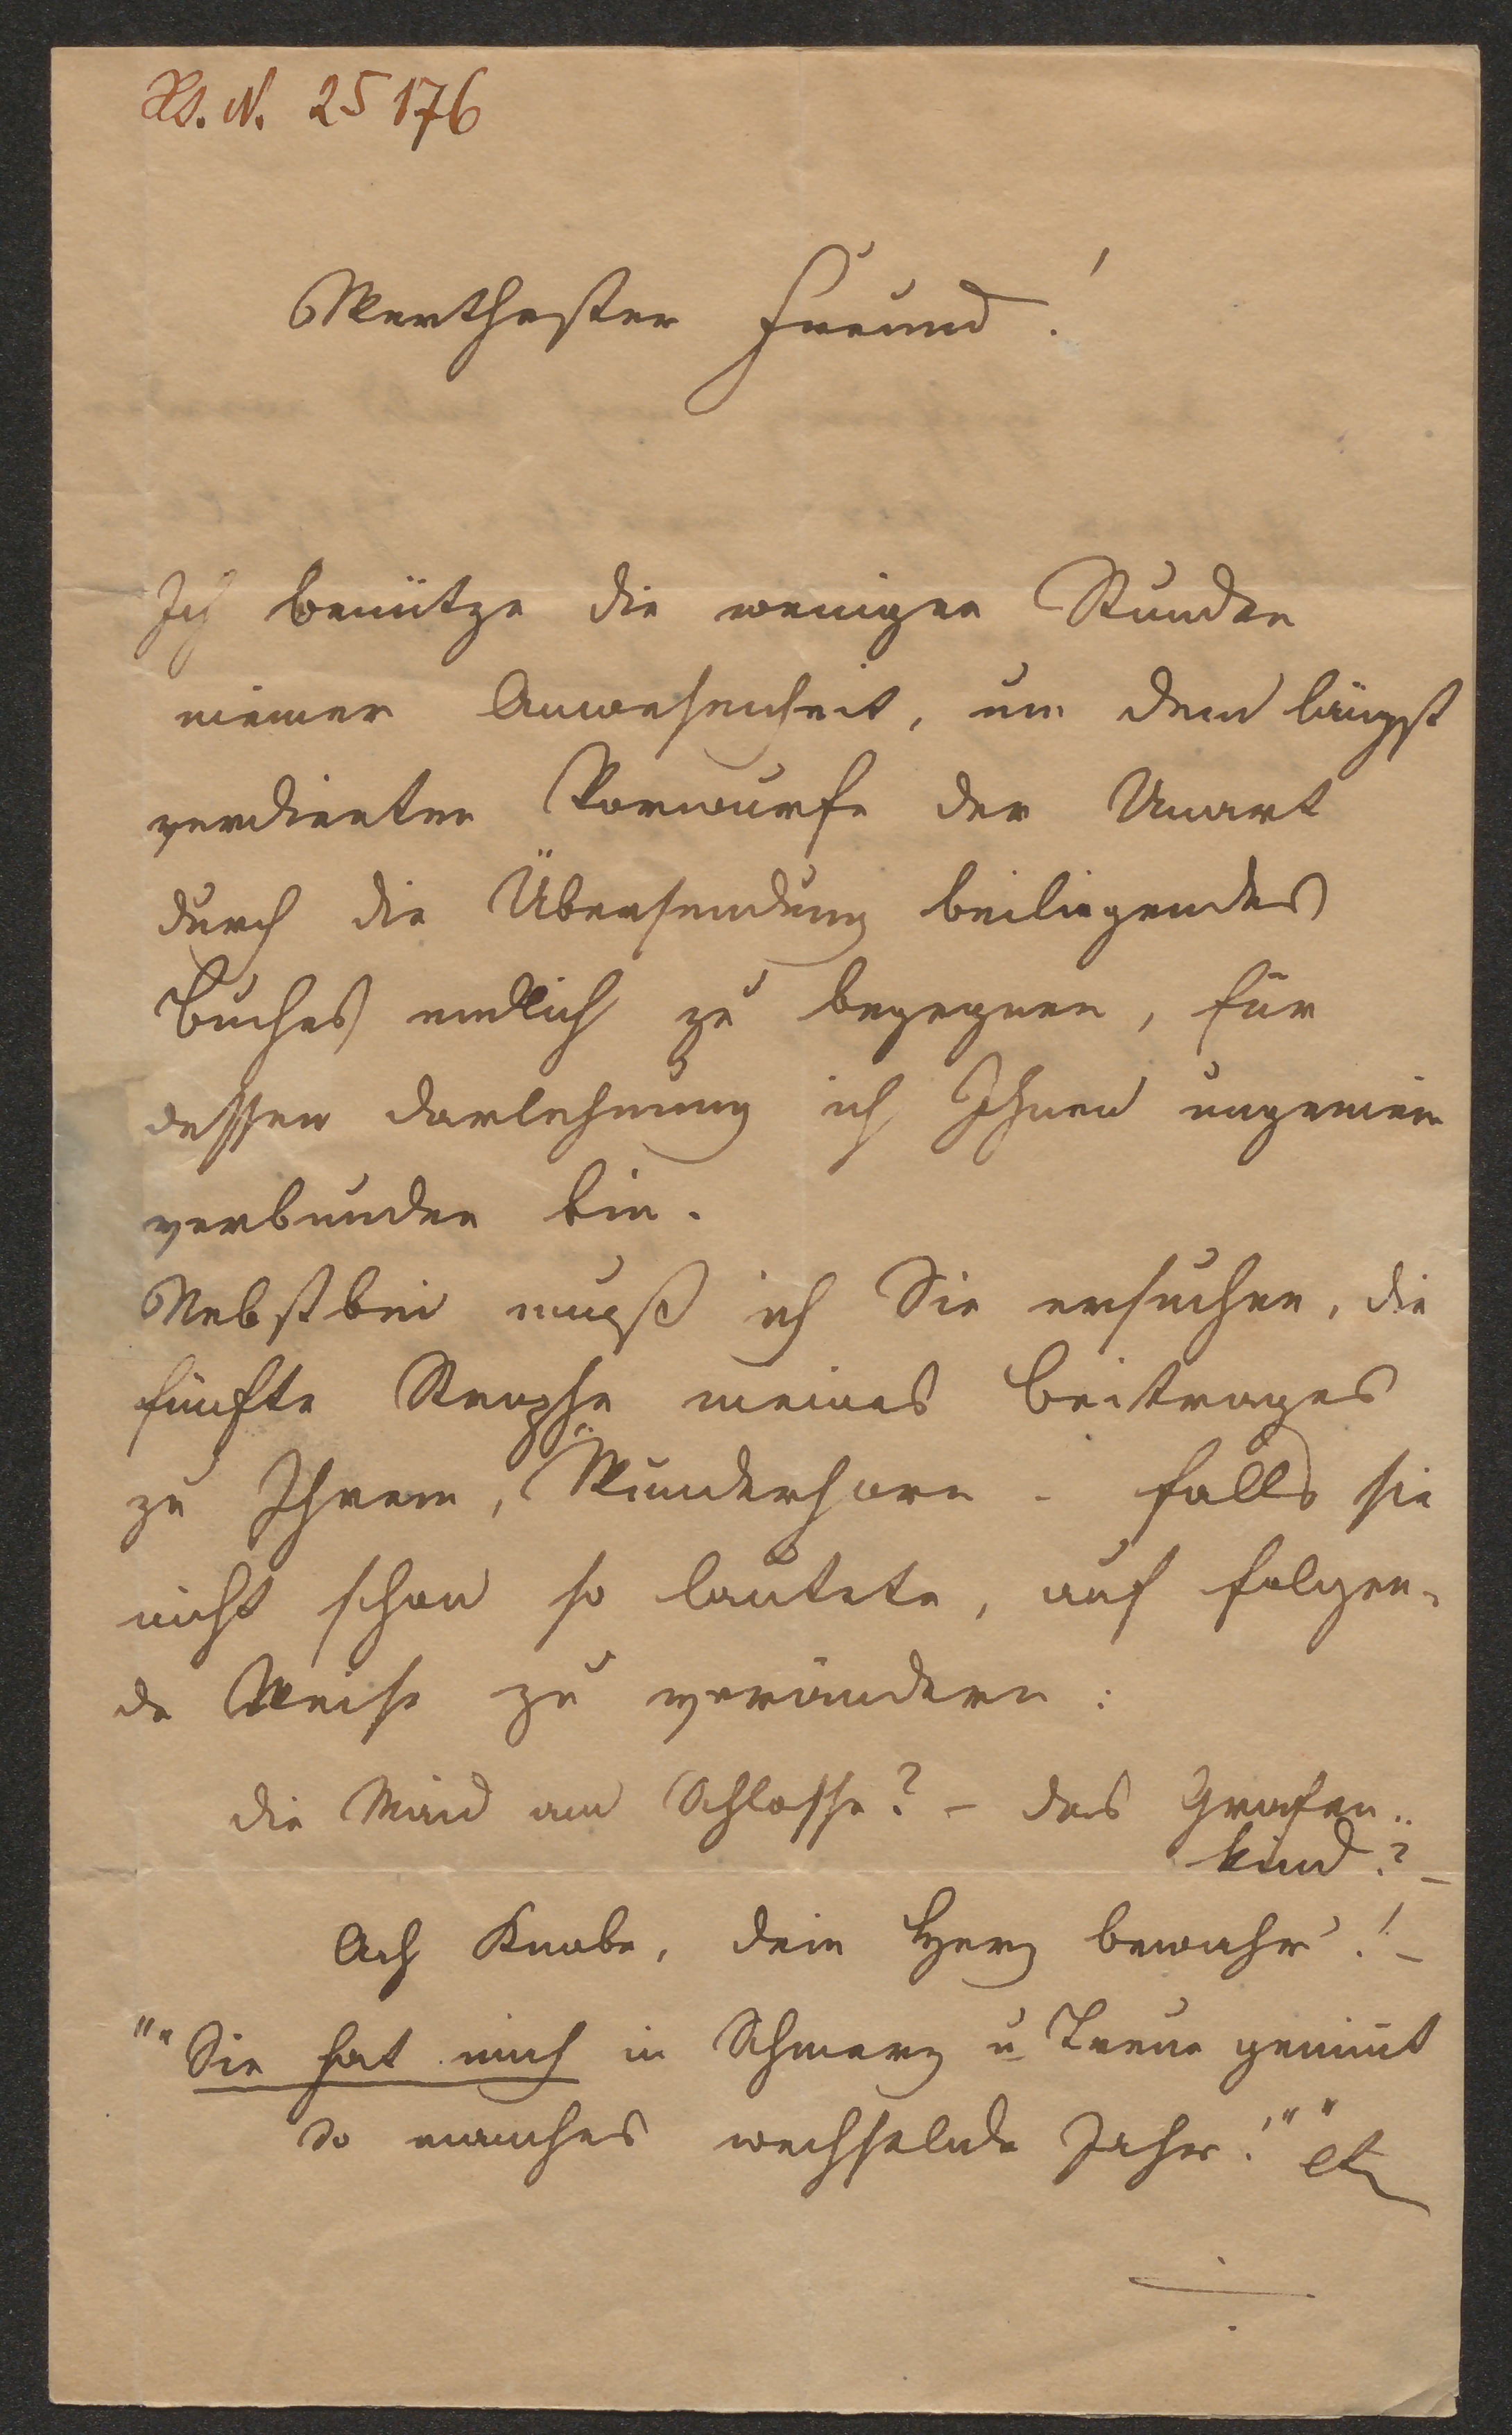 Hs. N. 25176
Werthester Freund!
Ich benütze die wenigen Stunden
meiner Anwesenheit, um dem längst
verdienten Vorwurfe der Unart
durch die Übersendung beiliegendes
Buches endlich zu begegnen, für
dessen Darlehnung ich Ihnen ungemein
verbunden bin.
Nebstbei muß ich Sie ersuchen, die
fünfte Strophe meines Beitrages
zu Ihrem, Wunderhorn - falls sie
nicht schon so lautete, auf folgen-
de Weise zu verändern:
die Maid am Schlosse? - des Grafen
kind? -
Ach Knabe, dein Herz bewahr'! -
"" Sie hat mich in Schmerz u Treue geminnt
So manches wechselnde Jahr!"" etc